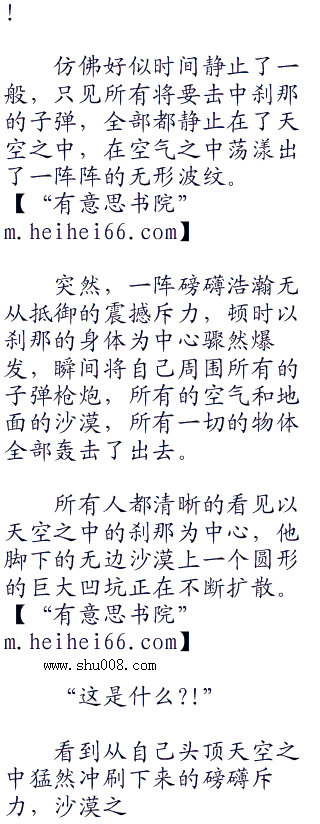 ！
仿佛好似时间静止了一
般，只见所有将要击中刹那
的子弹，全部都静止在了天
空之中，在空气之中荡漾出
了一阵阵的无形波纹。
【“有意思书院”
m.heihei66.com】
突然，一阵磅礴浩瀚无
从抵御的震撼斥力，顿时以
刹那的身体为中心骤然爆
发，瞬间将自己周围所有的
子弹枪炮，所有的空气和地
面的沙漠，所有一切的物体
全部轰击了出去。
所有人都清晰的看见以
天空之中的刹那为中心，他
脚下的无边沙漠上一个圆形
的巨大凹坑正在不断扩散。
【“有意思书院”
m.heihei66.com】
www.shu008.com
“这是什么?!”
看到从自己头顶天空之
中猛然冲刷下来的磅礴斥
力，沙漠之